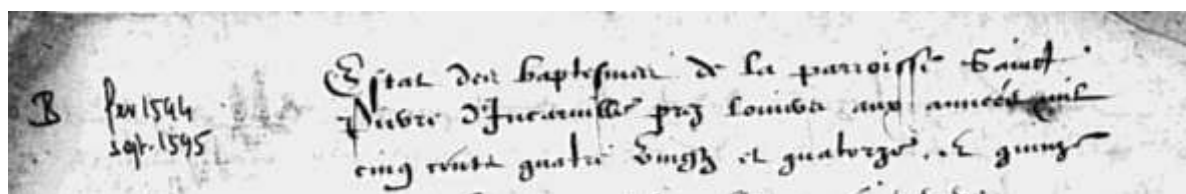 B
fev 1594
sept. 1595
Estat des baptesmes de la parroisse Sainct
Pierre d'Incarville prez Louviers aux années mil
cinq centz quatre vingtz et quatorze. et quinze